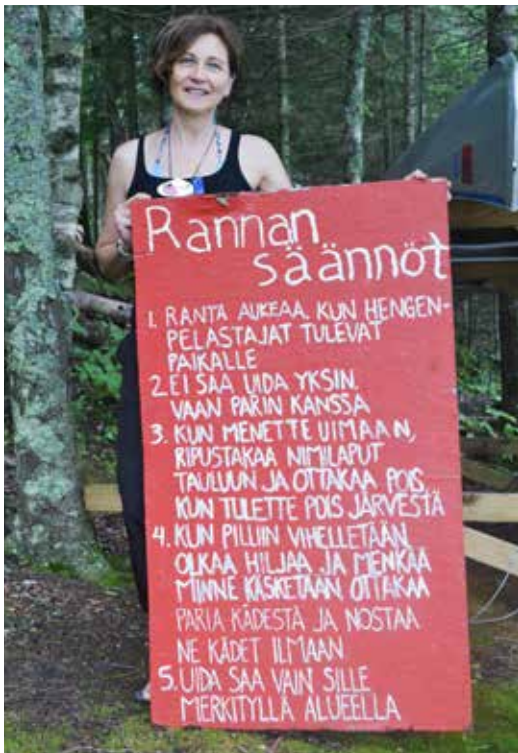 Rannan
säännöt
1. RANTA AUKEAA, KUN HENGEN-
PELASTAJAT TULEVAT
PAIKALLE
2. EI SAA UIDA YKSIN,
VAAN PARIN KANSSA
3. KUN MENETTE UIMAAN,
RIPUSTAKAA NIMILAPUT
TAULUUN JA OTTAKAA POIS,
KUN TULETTE POIS JÄRVESTÄ
4. KUN PILLIIN VIHELLETÄÄN
OLKAA HILJAA JA MENKÄÄ
MINNE KÄSKETÄÄN OTTAKAA
PARIA KÄDESTÄ JA NOSTAA
NE KÄDET ILMAAN
5. UIDA SAA VAIN SILLE
MERKITYLLÄ ALUEELLA